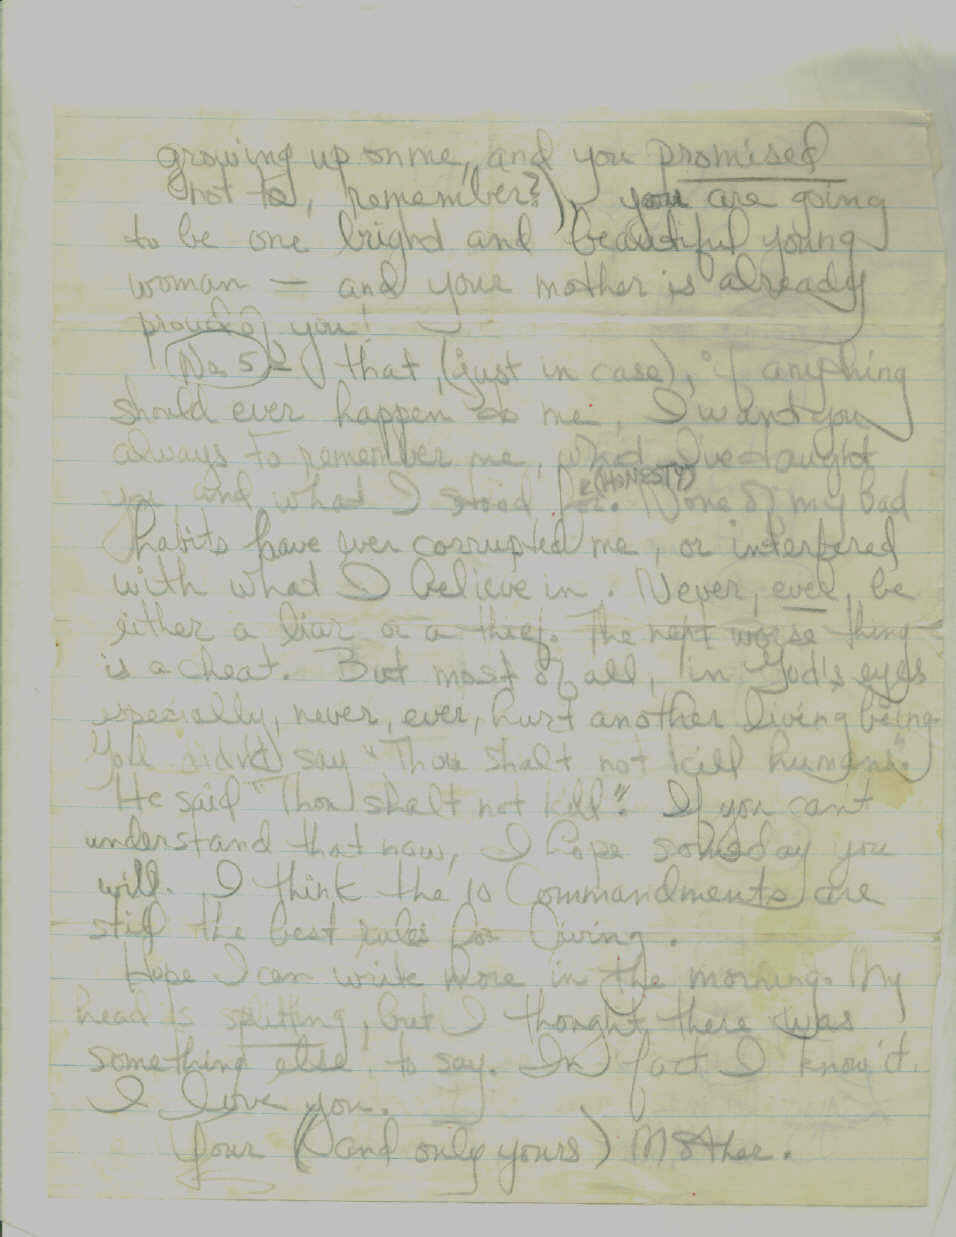 growing up on me, and you promised
not to, remember?), you are going
to be one bright and beautiful young
woman — and your mother is already
proud of you!
No. 5 that, (just in case), if anything
should ever happen to me, I want you
always to remember me, what I've taught
you and what I stood for. (HONESTY) None of my bad
habits have ever corrupted me, or interfered
with what I believe in. Never, ever, be
either a liar or a thief. The next worse thing
is a cheat. But most of all, in God's eyes
especially, never, ever, hurt another living being.
didn't say "Thou shalt not kill humans".
He said "Thou shalt not kill". If you can't
understand that now, I hope someday you
will. I think the 10 Commandments are
still the best rules for living.
Hope I can write more in the morning. My
head is splitting, but I thought there was
something else to say. In fact I know it.
I love you.
Your (and only yours) Mother.